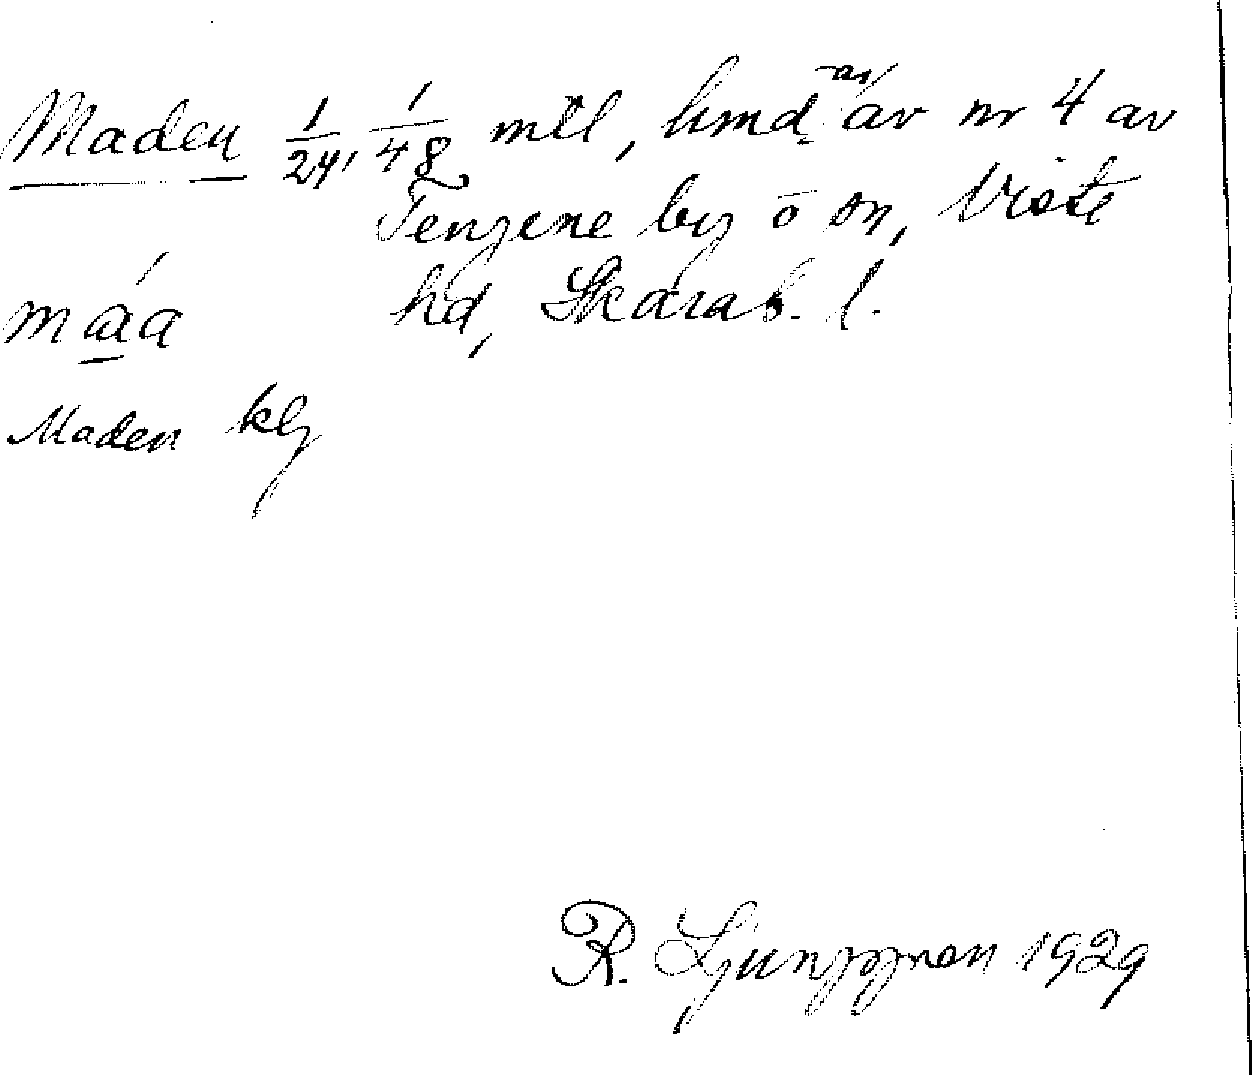 Maden 1/24, 1/48 mtl, hmd ar av nr 4 av
Tengene by o sn, Viste
måa hd, Skarab. l.
Maden kG
R. Ljunggren 1929